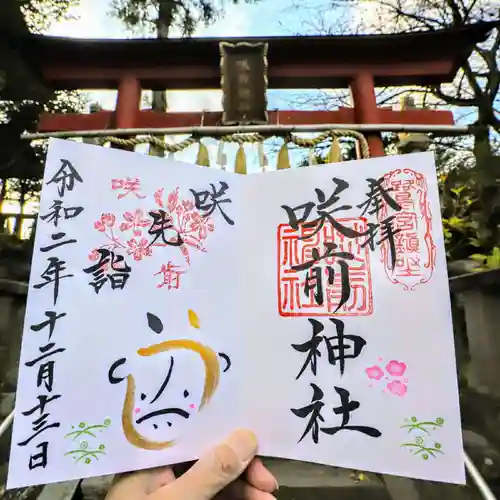 奉拝
咲前神社
咲前神社
咲
先
詣
咲
令和二年十二月十三日